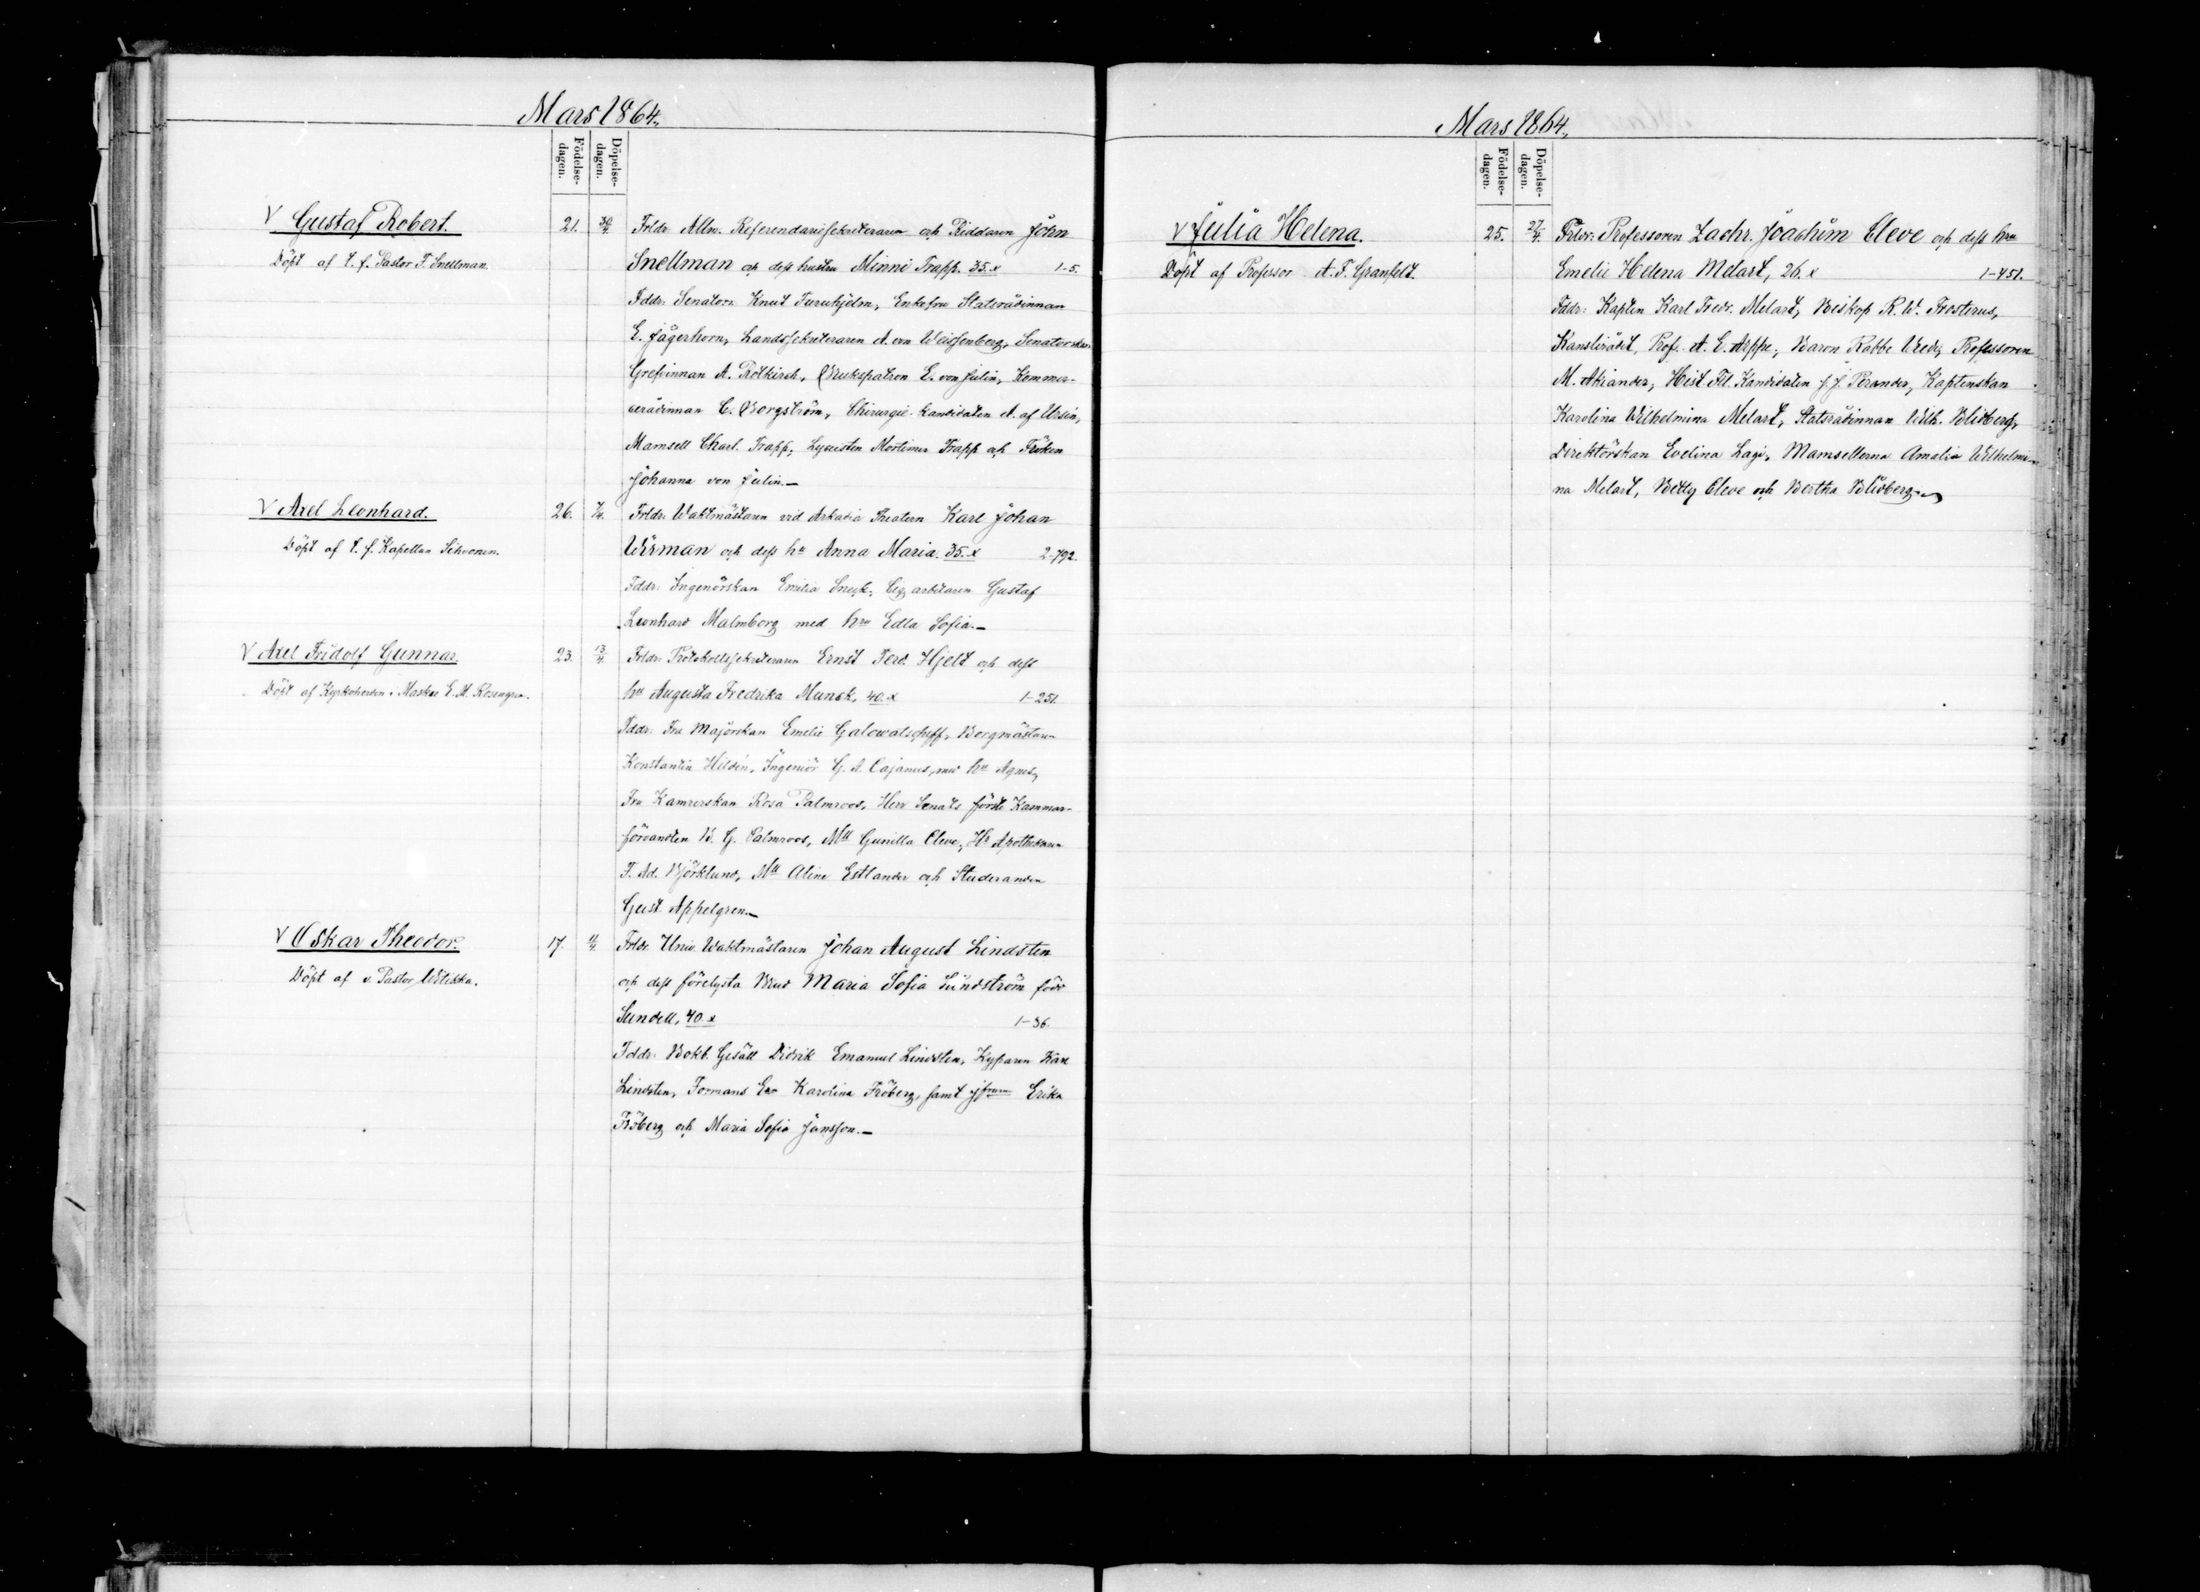 Mars 1864.
Födelse-dagen. Döpelse-dagen.
V Gustaf Robert. 21. 30/4. Frldr. Allm. Referendariesekreteraren och Riddaren John
Döpt af t. f. Pastor F. Snellman. Snellman och dess hustru Minni Trapp. 35. x 1-5.
Fddr: Senatorn Knut Furuhjelm, Enkefru Statsrådinnan
E. Jägerhorn, Landssekreteraren A. von Weissenberg, Senatorskan
Grefvinnan A. Rotkirch, Brukspatron E. von Julin, Kommer-
serådinnan C. Borgström, Chirurgie-kandidaten A. af Ursin,
Mamsell Charl. Trapp, Lyceisten Mortimer Trapp och Fröken
Johanna von Julin.—
V Axel Leonhard. 26. 7/4. Frldr: Waktmästaren vid Arkadia Theatern Karl Johan
Döpt af t. f. Kapellan Sihvonen. Wirman och dess hu Anna Maria. 35. x 2-792.
Fddr: Ingenörskan Emilia Cig. arbetaren Gustaf
Leonhard Malmborg med hru Edla Sofia.—
V Axel Fridolf Gunnar. 23. 13/4. Frldr: Protokollssekreteraren Ernst Ferd. Hjelt och dess
Döpt af Kyrkoherden i Masku E. M. Rosengren. hu Augusta Fredrika Munck, 40. x 1-251.
Fddr: Fru Majorskan Emelie Borgmästaren
Konstantin Hildén, Ingeniör G. A. Cajanus med hu Agnes,
Fru Kamrerskan Rosa Palmroos, Herr Senats förste Kammar-
förvandten B. G. Palmroos, Mll Gunilla Cleve, Hr Apothekaren
F. Ad. Björklund, Mll Aline Estlander och Studeranden
Gust. Appelgren.—
V Oskar Theodor. 17. 11/4. Frldr. Univ. Waktmästaren Johan August Lindsten
Döpt af v. Pastor Wilskka. och dess förelysta Brud Maria Sofia Sundström född
Sundell, 40. x 1-36.
Fddr: Bokb. Gesäll Didrik Emanuel Lindsten, Kyparen Karl
Lindsten, Formans Karolina Fröberg, samt jfrurne Erika
Fröberg och Maria Sofia Jansson.—
Mars 1864.
Födelse-dagen. Döpelse-dagen.
V Julia Helena. 25. 27/4. Frldr: Professoren Zachr. Joachim Cleve och dess hru
Döpt af Professor A. F. Granfelt. Emelie Helena Melart, 26. x 1-451.
Fddr: Kapten Karl Fredr. Melart, Biskop R. W. Frosterus,
Kanslirådet, Prof. A. E. Arppe, Baron Rabbe Wrede, Professoren
M. Akiander, Hist. Fil. Kandidaten J. J. Perander, Kaptenskan
Karolina Wilhelmina Melart, Statsrådinnan Wilh. Blidberg,
Direktörskan Evelina Lagi, Mamsellerna Amalia Wilhelmi-
na Melart, Betty Cleve och Bertha Blidberg.